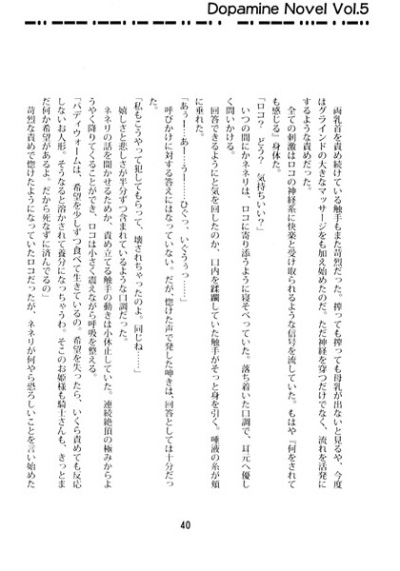 Dopamine Novel Vol.5
両乳首を責め続けている触手もまた苛烈だった。搾っても搾っても母乳が出ないと見るや、今度
はグラインドの大きなマッサージをも加え始めたのだ。ただ神経を穿つだけでなく、流れを活発に
するような責めだった。
全ての刺激はロコの神経系に快楽と受け取られるような信号を流していた。もはや『何をされて
も感じる』身体だ。
「ロコ？　どう？　気持ちいい？」
いつの間にかネネリは、ロコに寄り添うように寝そべっていた。落ち着いた口調で、耳元へ優し
く問いかける。
回答できるようにと気を回したのか、口内を蹂躙していた触手がそっと身を引く。唾液の糸が頬
に垂れた。
「あぅー……あー……うー……ひぐっ、いぐぅぅっ……」
呼びかけに対する答えにはなっていない。だが、惚けた声で発した呻きは、回答としては十分だっ
た。
「私もこうやって犯してもらって、壊されちゃったのよ。同じね……」
嬉しさと悲しさが半分ずつ含まれているような口調だった。
ネネリの話を聞かせるためか、責め立てる触手の動きは小休止していた。連続絶頂の極みからよ
うやく降りてくることができ、ロコは小さく震えながら呼吸を整える。
「バディウォームは、希望を少しずつ食べて生きているの。希望を失ったら、いくら責めても反応
しないお人形。そうなると溶かされて養分になっちゃうわ。そこのお姫様も騎士さんも、きっとま
だ何か希望があるよ。だから死なずに済んでるの」
苛烈な責めで惚けたようになっていたロコだったが、ネネリが何やら恐ろしいことを言い始めた
40